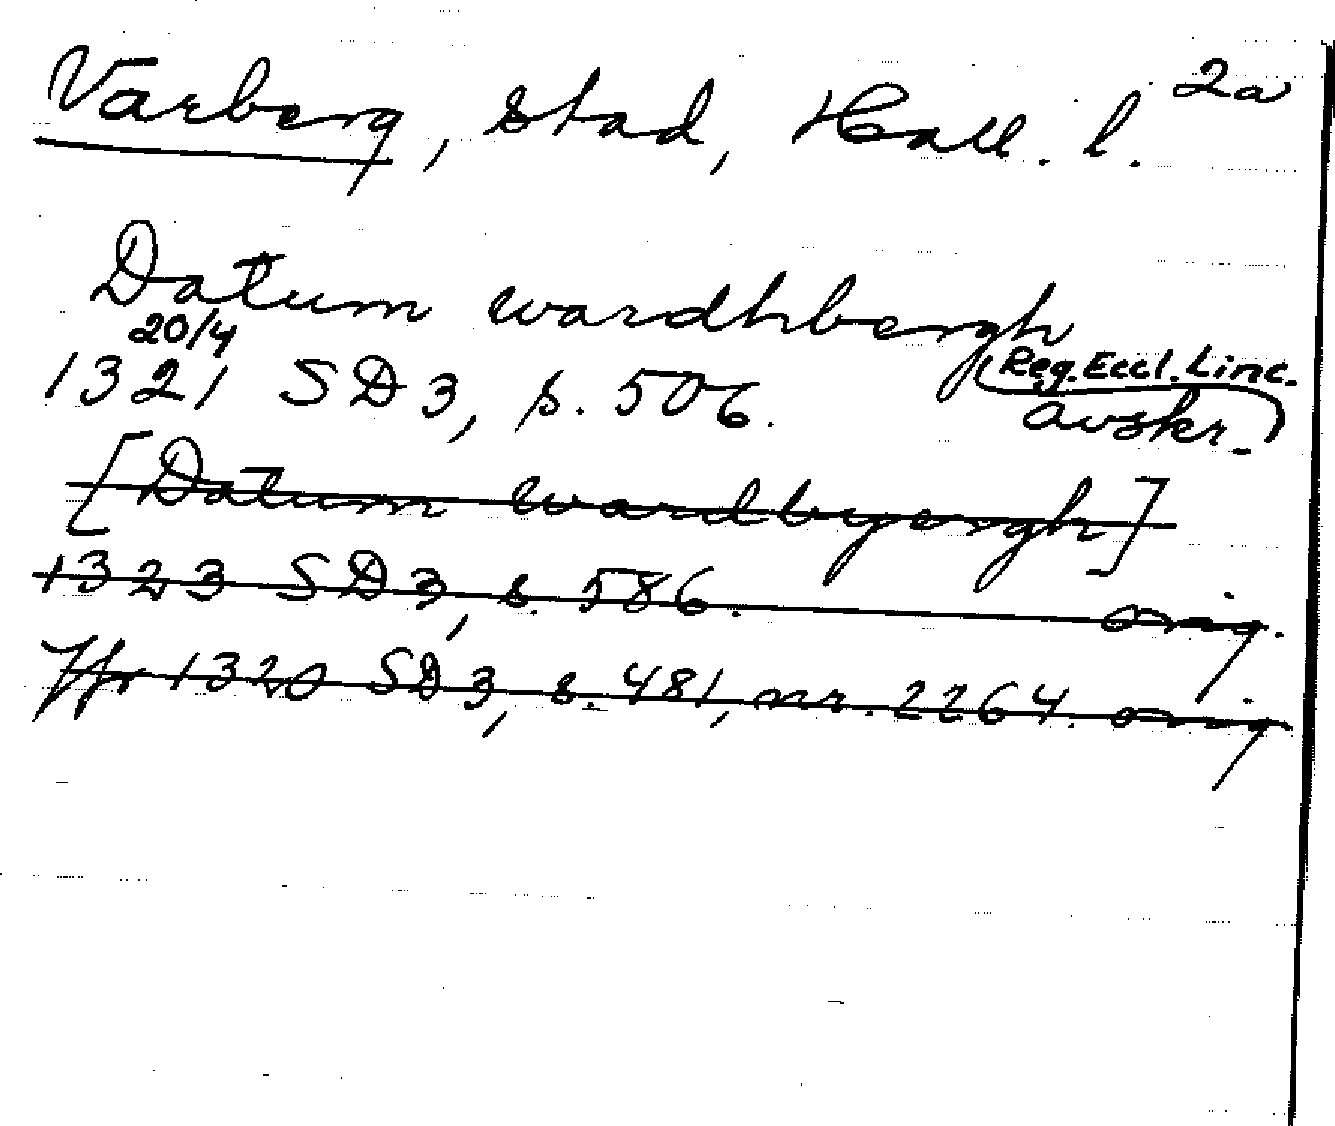 Varberg, stad, Hall. l. 2a
Datum wardhbergh
20/4
1321 SD 3, s. 506. (Reg. Eccl. Linc.
avskr.)
[Datum wardbyergh]
1323 SD 3, s. 586. orig.
Jfr 1320 SD 3, s. 481, nr. 2264. orig